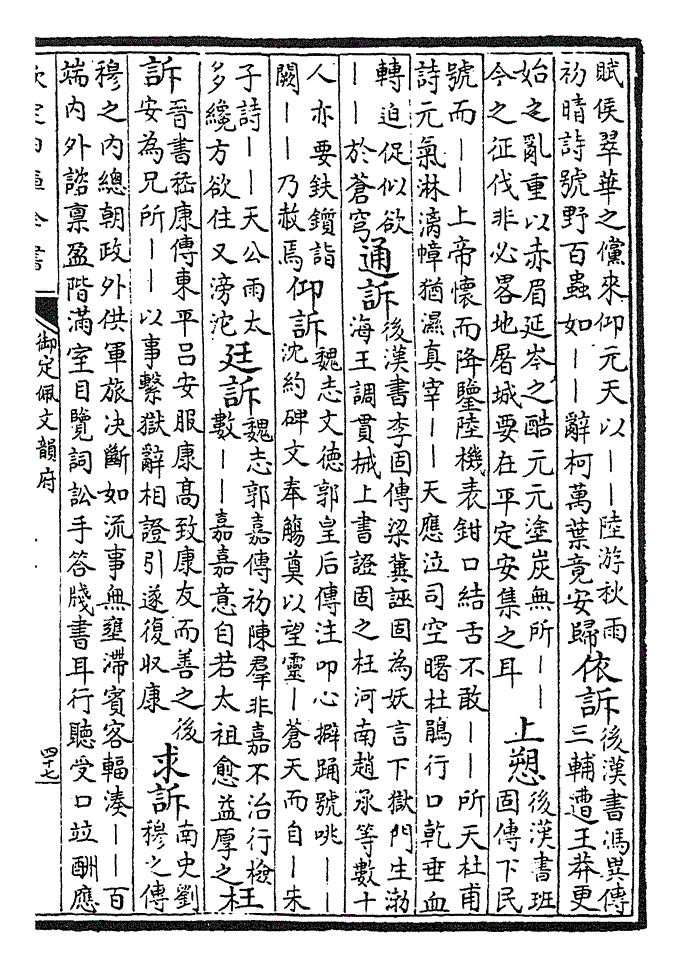 賦俟翠華之儻來仰元天以——陸游秋雨
初晴詩號野百蟲如——辭柯萬葉竟安歸
依訴
後漢書馮異傳
三輔遭王莽更
始之亂重以赤眉延岑之酷元元塗炭無所——
今之征伐非必畧地屠城要在平定安集之耳
上愬
後漢書班
固傳下民
號而——上帝懷而降鑒陸機表鉗口結舌不敢——所天杜甫
詩元氣淋漓幛猶濕真宰——天應泣司空曙杜鵑行口乾垂血
轉迫促似欲
——於蒼穹
通訴
後漢書李固傳梁冀誣固為妖言下獄門生渤
海王調貫械上書證固之枉河南趙承等數十
人亦要鈇鑕詣
闕——乃赦焉
仰訴
魏志文德郭皇后傳注叩心擗踊號咷——
沈約碑文奉觴奠以望靈—蒼天而自—朱
子詩——天公雨太
多纔方欲住又滂沱
廷訴
魏志郭嘉傳初陳羣非嘉不治行檢
數——嘉嘉意自若太祖愈益厚之
枉
訴
晉書嵇康傳東平呂安服康高致康友而善之後
安為兄所——以事繫獄辭相證引遂復収康
求訴
南史劉
穆之傳
穆之內總朝政外供軍旅决斷如流事無壅滯賓客輻湊——百
端內外諮稟盈階滿室目覽詞訟手答牋書耳行聽受口竝酬應
欽定四庫全書
御定佩文韻府
四十七